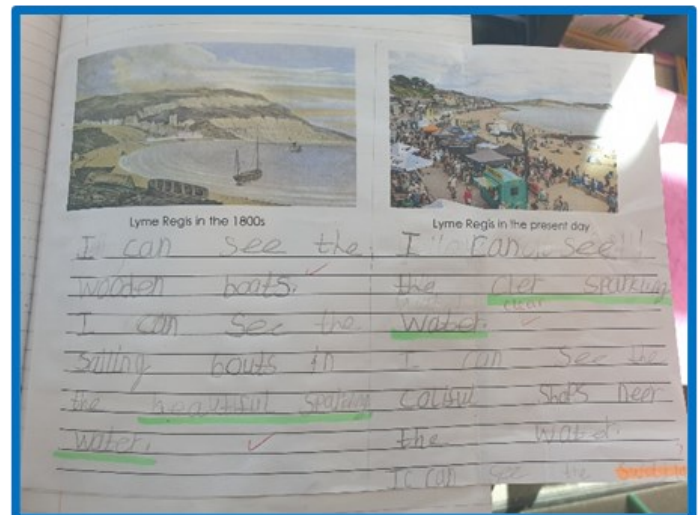 Lyme Regis in the 1800s
I can see the
wooden boats.
I can see the
sailing bouts in
the beautiful sparkling
water.
Lyme Regis in the present day
I can see
the cler sparkling
clear
water.
I can see the
shops neer
the water.
I can see the